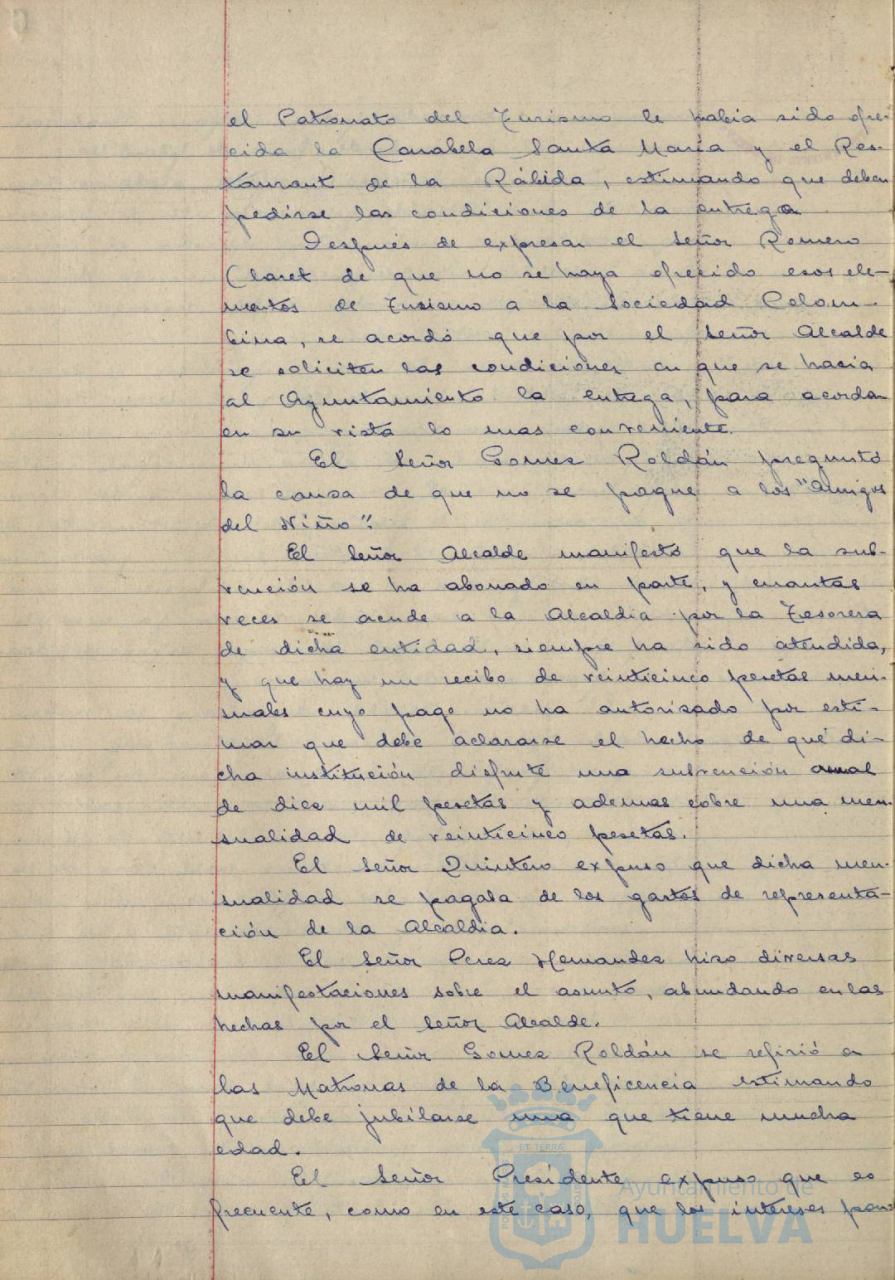 el Patronato del Turismo le habia sido ofre-
cida la Carabela Santa María y el Res-
taurant de la Rábida, estimando que deben
pedirse las condiciones de la entrega
Después de expresar el Señor Romero
Claret de que no se haya ofrecido esos ele-
mentos de Turismo a la Sociedad Colom-
bina, se acordó que por el Señor Alcalde
se soliciten las condiciones en que se hacia
al Ayuntamiento la entega, para acordar
en su vista lo mas conveniente.
El Señor Gomez Roldán preguntó
la causa de que no se pague a los "Amigos
del Niño".
El Señor Alcalde manifestó que la sub-
vención se ha abonado en parte, y cuantas
veces se acude a la Alcaldia por la Tesorera
de dicha entidad, siempre ha sido atendida,
y que hay un recibo de veinticinco pesetas men-
suales cuyo pago no ha autorizado por esti-
mar que debe aclararse el hecho de que di-
cha institución disfrute una subvención anual
de diez mil pesetas y ademas cobre una men-
sualidad de veinticinco pesetas.
El Señor Quintero expuso que dicha men-
sualidad se pagaba de los gastos de representa-
ción de la Alcaldia.
El Señor Perez Hernandez hizo diversas
manifestaciones sobre el asunto, abundando en las
hechas por el Señor Alcalde.
El Señor Gomez Roldán se refirió a
las Matronas de la Beneficencia estimando
que debe jubilarse una que tiene mucha
edad.
El Señor Presidente expuso que es
frecuente, como en este caso, que los intereses par
Ayuntamiento de
HUELVA